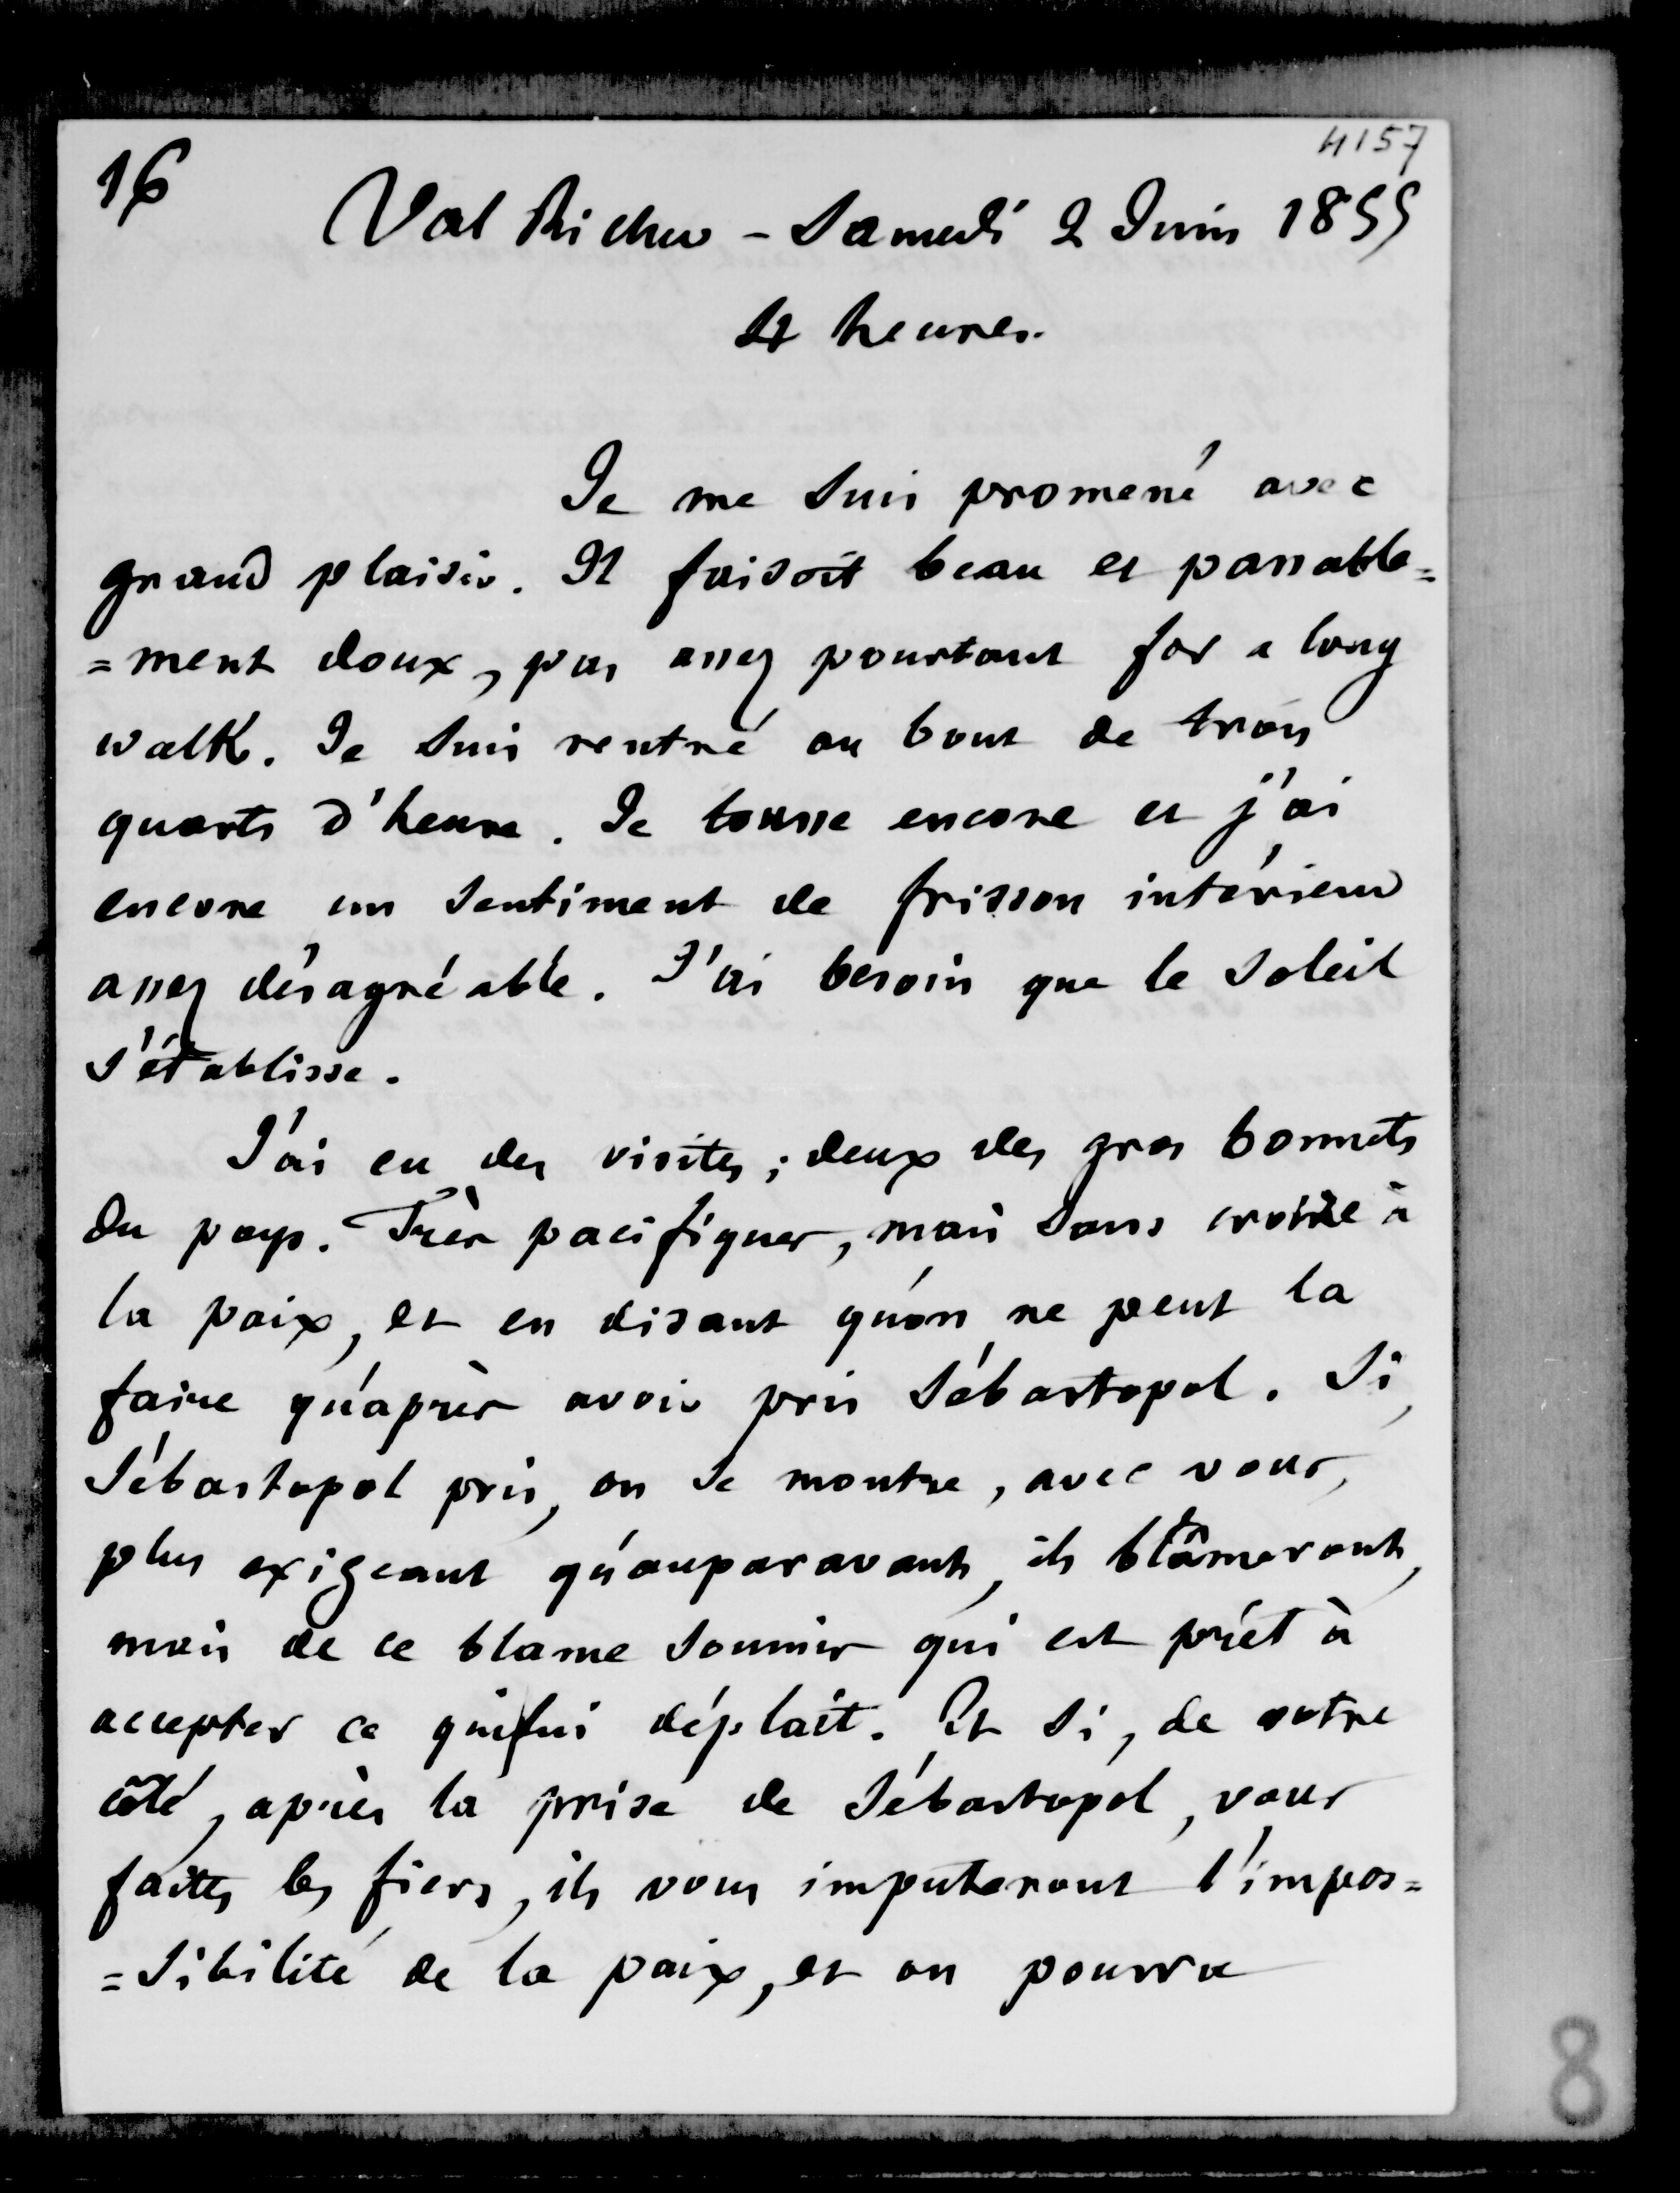 4157
16
Val Richer - Samedi 2 Juin 1855
4 heures.
Je me suis promené avec
grand plaisir. Il faisoit beau et passable=
=ment doux, pas assez pourtant for a long
walk. Je suis rentré au bout de trois
quarts d'heure. Je tousse encore et j'ai
encore un sentiment de frisson intérieur
assez désagréable. J'ai besoin que le soleil
s'établisse.
J'ai eu des visites; deux des gros bonnets
du pays. Très pacifiques, mais sans croire à
la paix, et en disant qu'on ne peut la
faire qu'après avoir pris Sébastopol. Si,
Sébastopol pris, on se montre, avec vous,
plus exigeant qu'auparavant, ils blâmeront,
mais de ce blame soumis qui est prêt à
accepter ce qui lui déplaît. Et si, de votre
côté, après la prise de Sébastopol, vous
faites les fiers, ils vous imputeront l'impos=
=sibilité de la paix, et on pourra
8